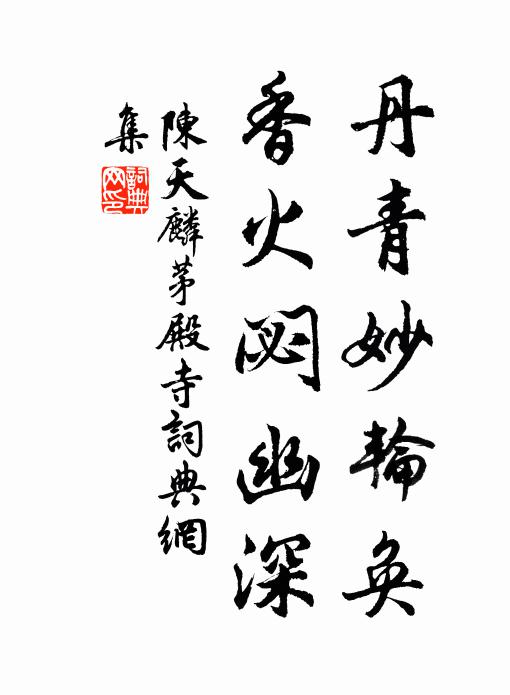 丹青妙輪奐
香火閟幽深
陳天麟茅殿寺詞典網
集
詞典網印